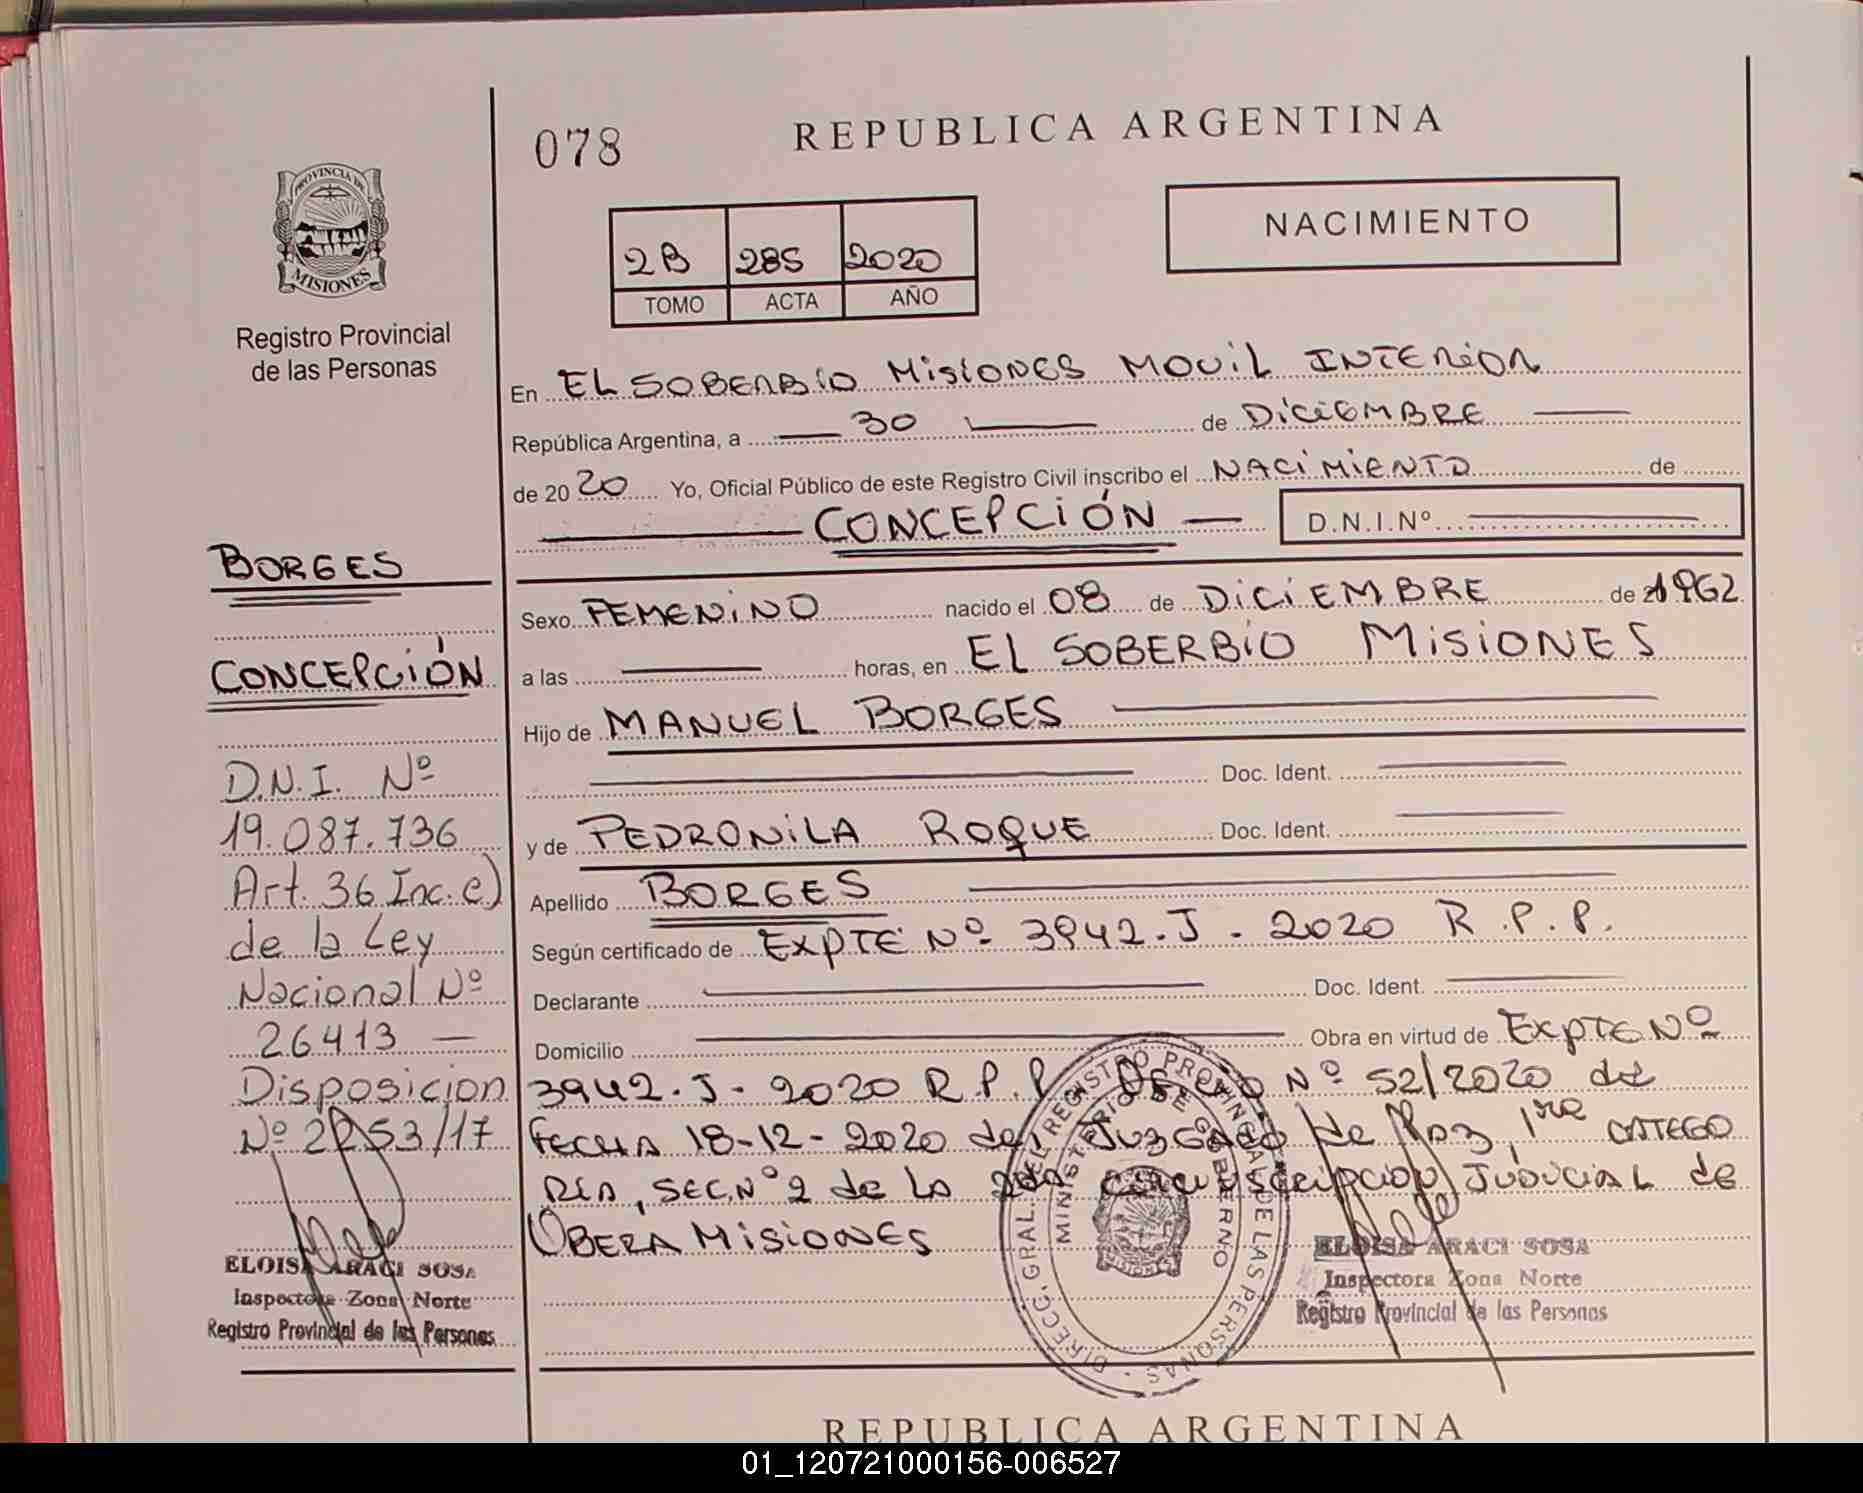 078
REPUBLICA ARGENTINA
PROVINCIA DE
MISIONES
Registro Provincial
de las Personas
NACIMIENTO
2B 285 2020
TOMO ACTA AÑO
En EL SOBERBIO MISIONES MOVIL INTERIOR
República Argentina, a 30 de DICIEMBRE
de 20 20 Yo, Oficial Público de este Registro Civil inscribo el NACIMIENTO de
CONCEPCIÓN D.N.I.Nº
Sexo FEMENINO nacido el 08 de DICIEMBRE de 1962
a las horas, en EL SOBERBIO MISIONES
Hijo de MANUEL BORGES
Doc. Ident.
y de PEDRONILA ROQUE Doc. Ident.
Apellido BORGES
Según certificado de EXPTE Nº 3942.J-2020 R.P.P.
Declarante Doc. Ident.
Domicilio Obra en virtud de EXPTE Nº
3942.J-2020 R.P.P. Nº 52/2020 de
FECHA 18-12-2020 del JUZGADO de PAZ 1ra CATEGO
RIA, SEC.Nº2 de LA 2da CIRCUNSCRIPCION JUDICIAL de
OBERA MISIONES
BORGES
CONCEPCIÓN
D.N.I. Nº
19.087.736
Art. 36 Inc. e)
de la Ley
Nacional Nº
26413 —
Disposicion
Nº /17
ELOISA ARACI SOSA
Inspectora Zona Norte
Registro Provincial de las Personas
DIRECC. GRAL. DEL REGISTRO PROVINCIAL DE LAS PERSONAS
MINISTERIO DE GOBIERNO
MISIONES
ELOISA ARACI SOSA
Inspectora Zona Norte
Registro Provincial de las Personas
REPUBLICA ARGENTINA
01_120721000156-006527